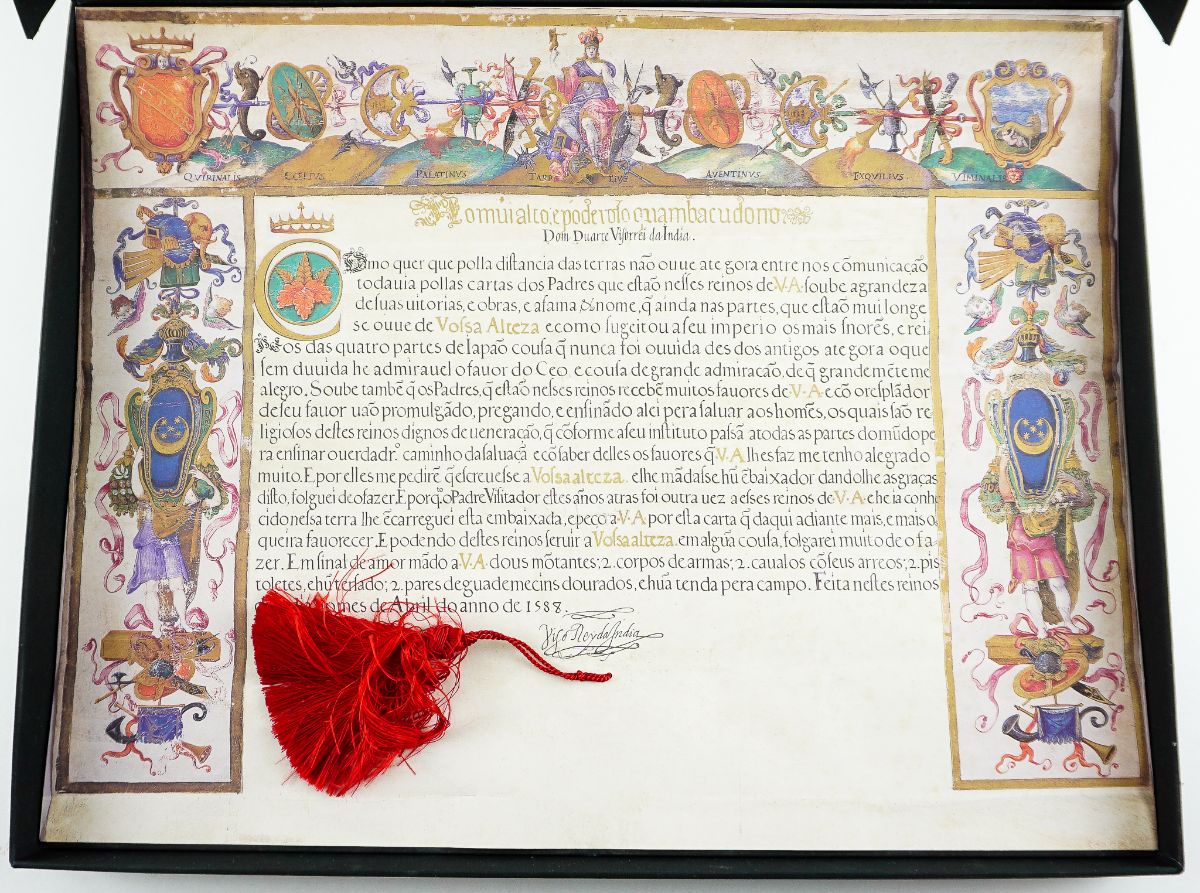 QVIRINALIS CELIVS PALATINVS TARP IVS AVENTINVS EXQVILIVS VIMINALIS
Ao mui alto, e poderoso quambacudono
Dom Duarte Visorrei da India.
Como quer que polla distancia das terras não ouue ate gora entre nos cõmunicação
todauia pollas cartas dos Padres que estão nesses reinos de V·A· soube a grandeza
de suas uitorias, e obras, e a fama & nome, q̃ ainda nas partes, que estão mui longe
se ouue de Vossa Alteza e como sugeitou a seu imperio os mais snorẽs, e rei,
nos das quatro partes de Iapão cousa q̃ nunca foi ouuida des dos antigos ate gora o que
sem duuida he admirauel o fauor do Ceo, e cousa de grande admiração, de q̃ grande mẽte me
alegro. Soube tambẽ q̃ os Padres, q̃ estão nesses reinos recebẽ muitos fauores de V·A· e cõ o resplãdor
de seu fauor uão promulgãdo, pregando, e ensinãdo a lei pera saluar aos homẽs, os quais são re-
ligiosos destes reinos dignos de ueneração, q̃ cõforme a seu instituto passã a todas as partes do mũdo pe
ra ensinar o uerdadrº. caminho da saluaçã e cõ saber delles os fauores q̃ V·A lhes faz me tenho alegrado
muito. E por elles me pedirẽ q̃ escreuesse a Vossa alteza. e lhe mãdasse hũ ẽbaixador dandolhe as graças
disto, folguei de o fazer. E porq̃ o Padre Visitador estes años atras foi outra uez a esses reinos de V·A· e he ia conhe
cido nessa terra lhe ẽcarreguei esta embaixada, e peço a V·A por esta carta q̃ daqui adiante mais, e mais o
queira fauorecer. E podendo destes reinos seruir a Vossa alteza. em algũa cousa, folgarei muito de o fa-
zer. Em sinal de amor mãdo a V·A· dous mõtantes; 2. corpos de armas; 2. caualos cõ seus arreos; 2. pis
toletes, e hũ terçado; 2. pares de guademecins dourados, e hũa tenda pera campo. Feita nestes reinos
mes de Abril do anno de 1588.
Viso Rey da India